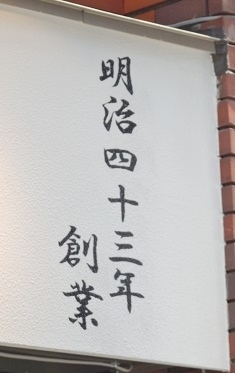 明治四十三年
創業